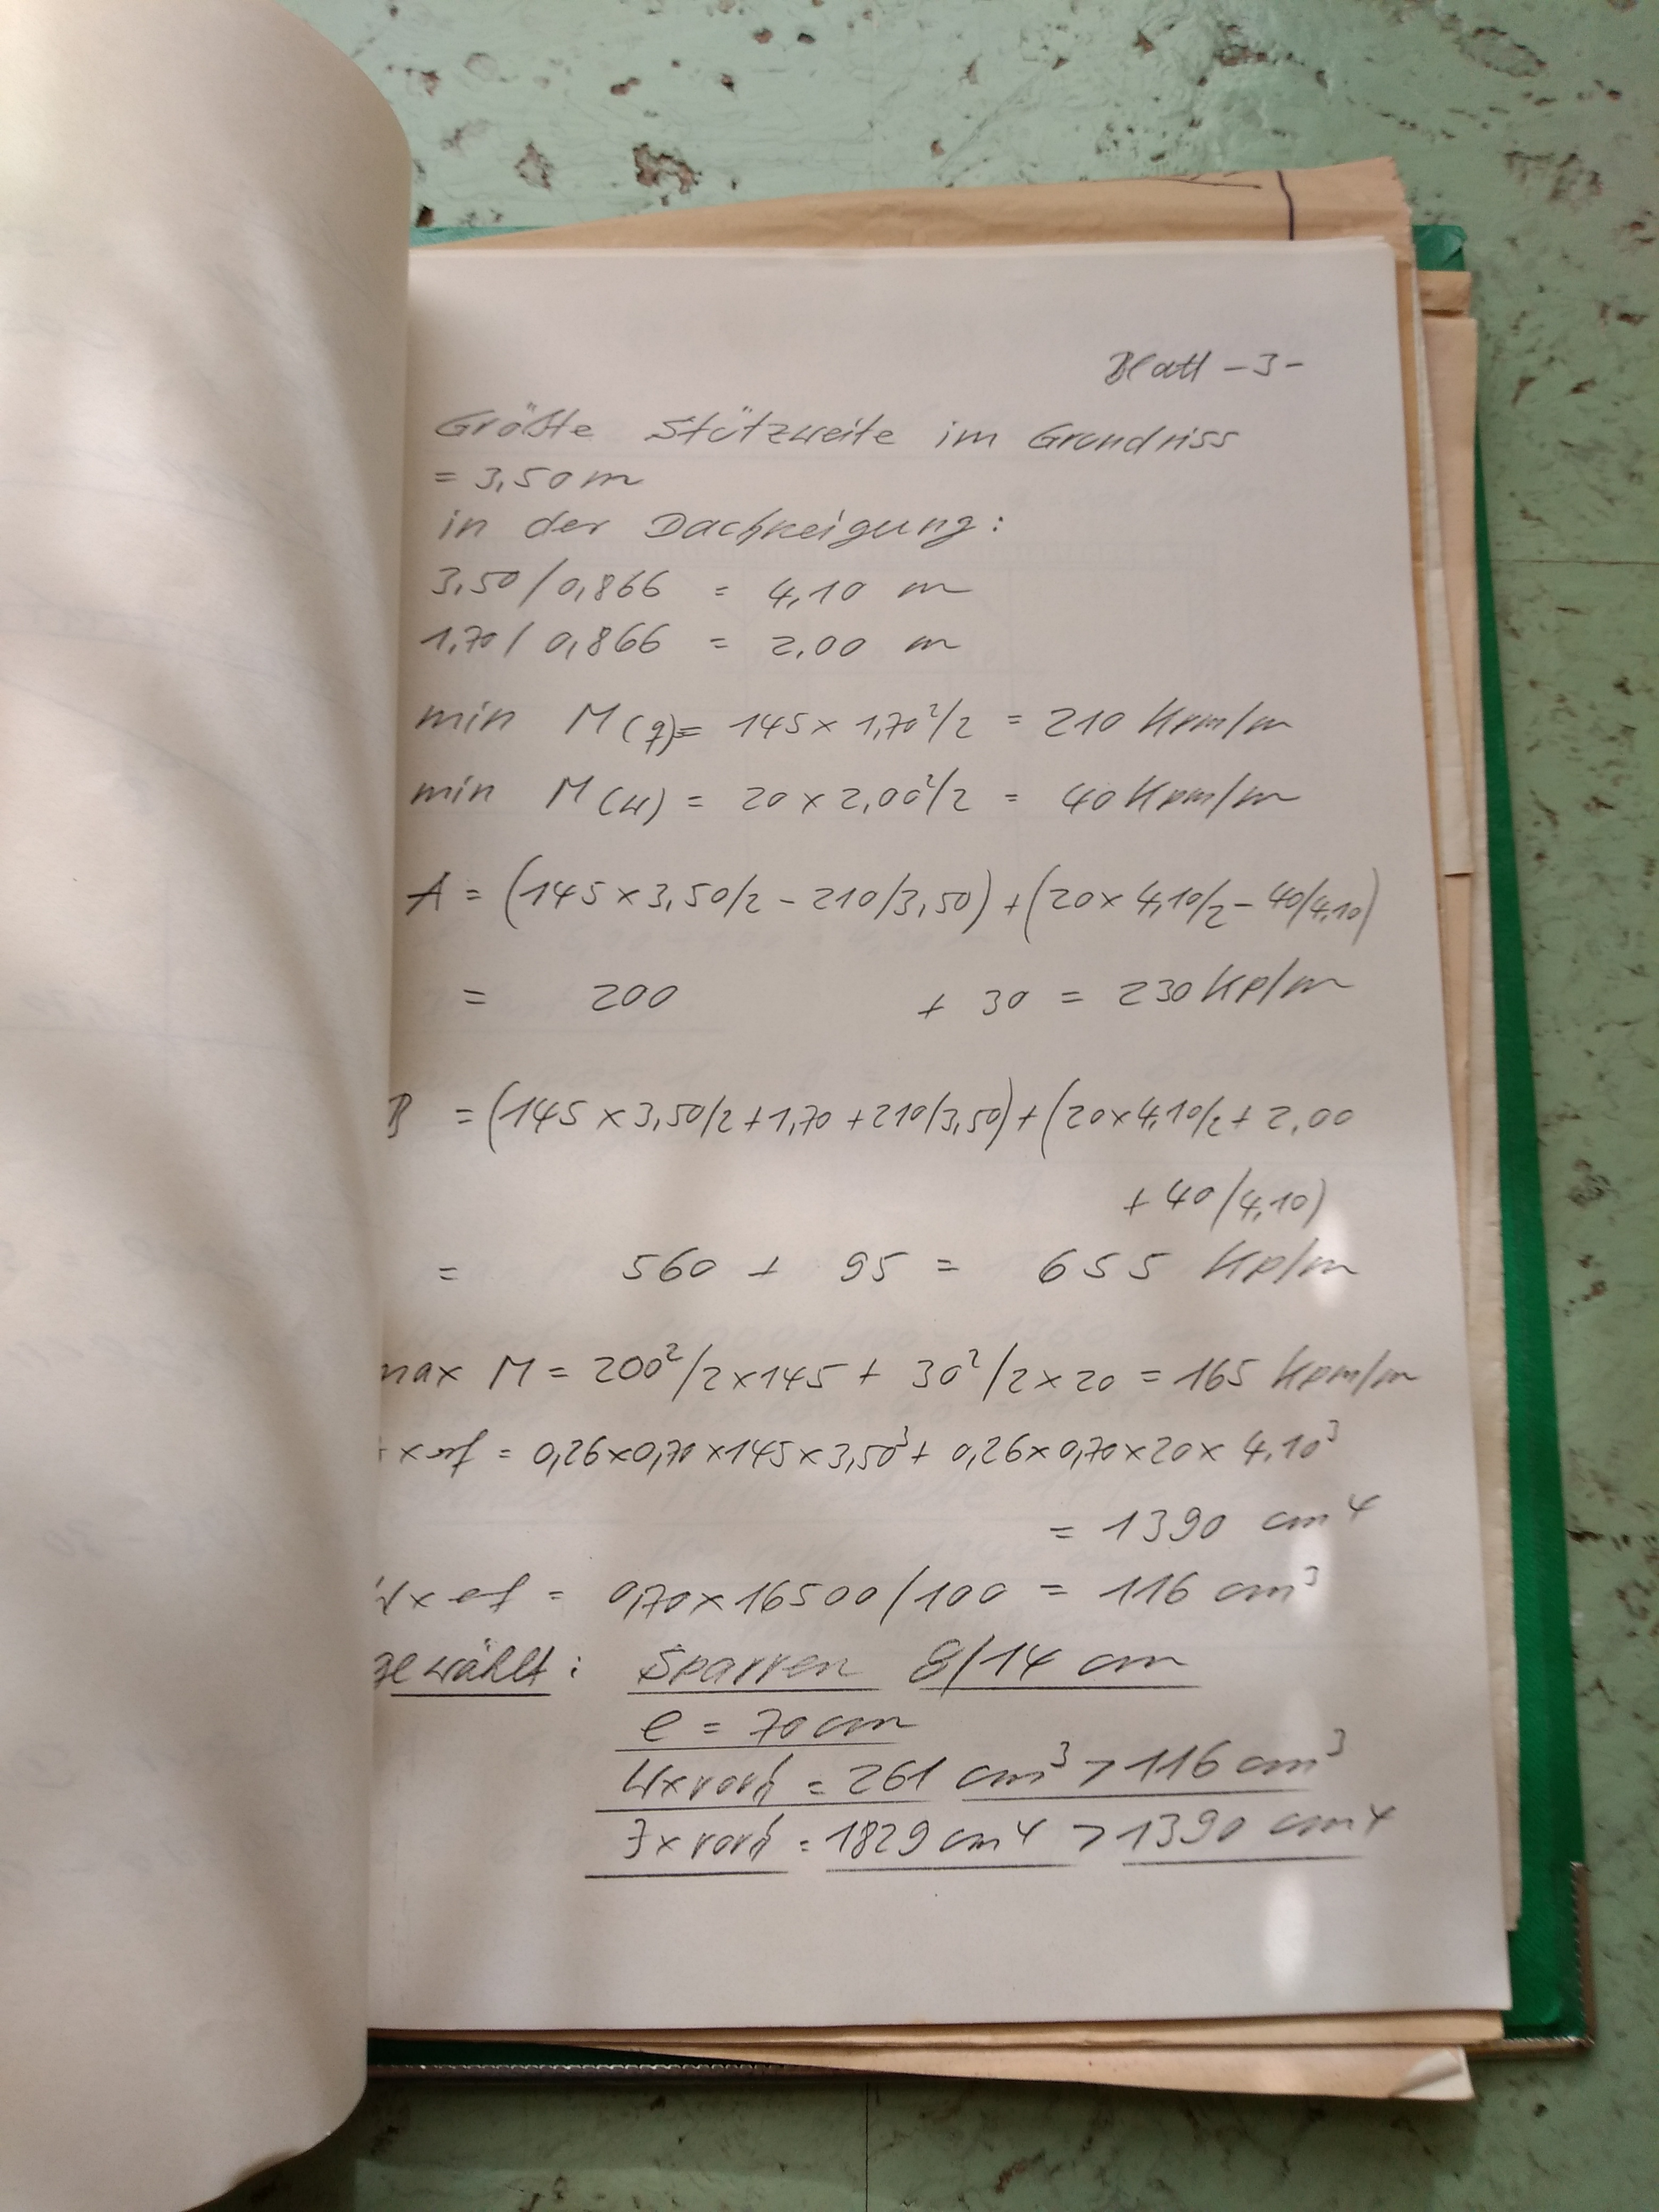 Blatt -3-
Größte Stützweite im Grundriss
= 3,50 m
in der Dachneigung:
3,50/0,866 = 4,10 m
1,70/0,866 = 2,00 m
min M(q)= 145 x 1,70²/2 = 210 Kpm/m
min M(w) = 20 x 2,00²/2 = 40 Kpm/m
A = (145 x 3,50/2 - 210/3,50) + (20 x 4,10/2 - 40/4,10)
= 200 + 30 = 230 Kp/m
B = (145 x 3,50/2 + 1,70 + 210/3,50) + (20 x 4,10/2 + 2,00
+ 40/4,10)
= 560 + 95 = 655 Kp/m
max M = 200²/2x145 + 30²/2x20 = 165 Kpm/m
x erf = 0,26x0,70x145x3,50³ + 0,26x0,70x20x 4,10³
= 1390 cm⁴
Wx erf = 0,70x16500/100 = 116 cm³
gewählt: Sparren 8/14 cm
e = 70 cm
Wx vorh = 261 cm³ > 116 cm³
Jx vorh = 1829 cm⁴ > 1390 cm⁴